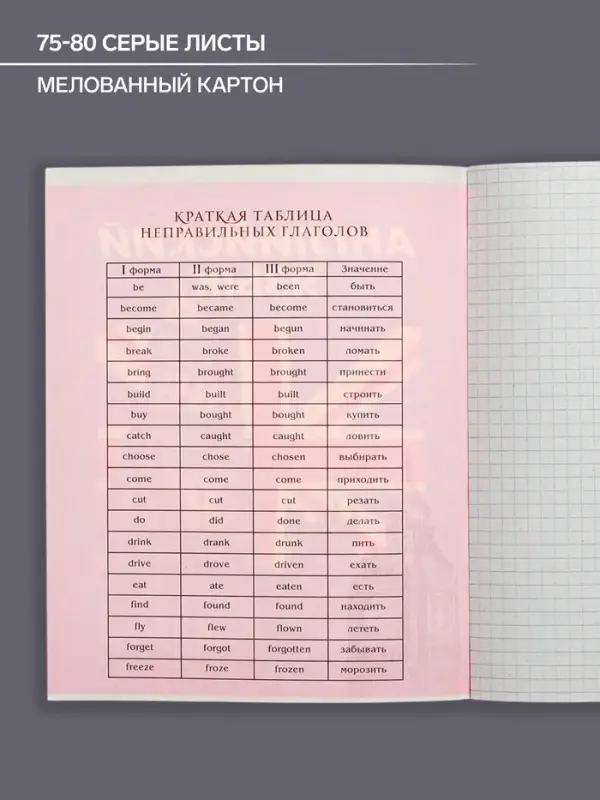 75-80 СЕРЫЕ ЛИСТЫ
МЕЛОВАННЫЙ КАРТОН
КРАТКАЯ ТАБЛИЦА
НЕПРАВИЛЬНЫХ ГЛАГОЛОВ
I форма II форма III форма Значение
be was, were been быть
become became become становиться
begin began begun начинать
break broke broken ломать
bring brought brought принести
build built built строить
buy bought bought купить
catch caught caught ловить
choose chose chosen выбирать
come come come приходить
cut cut cut резать
do did done делать
drink drank drunk пить
drive drove driven ехать
eat ate eaten есть
find found found находить
fly flew flown лететь
forget forgot forgotten забывать
freeze froze frozen морозить